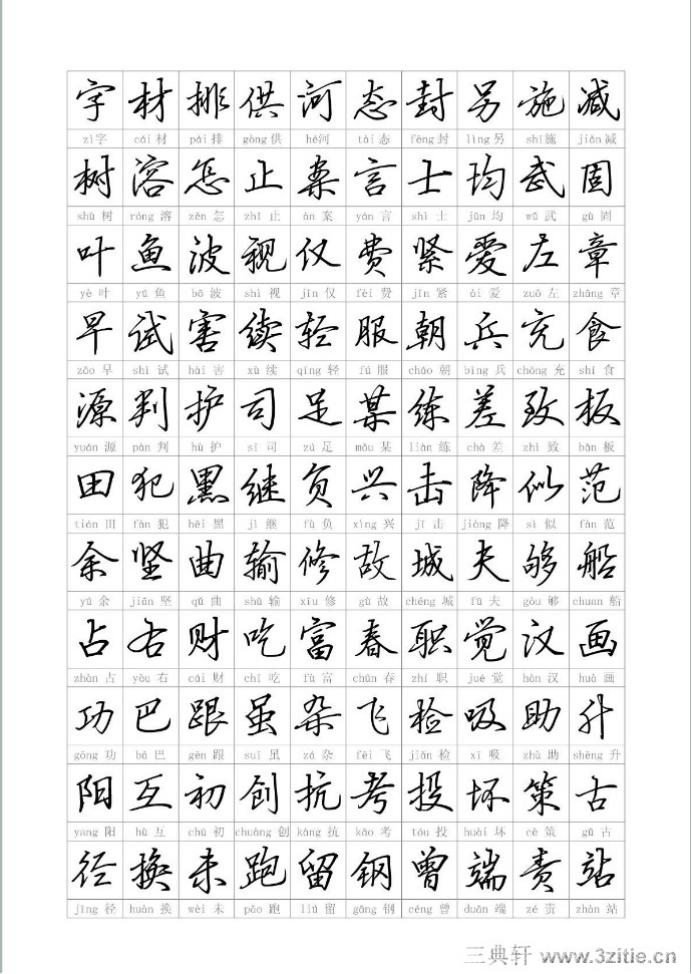 字 材 排 供 河 态 封 另 施 减
zì字 cái 材 pái 排 gòng 供 hé河 tài 态 fēng 封 lìng 另 shī施 jiǎn 减
树 溶 怎 止 案 言 士 均 武 固
shù 树 róng 溶 zěn 怎 zhǐ 止 àn 案 yán 言 shì 士 jūn 均 wǔ 武 gù 固
叶 鱼 波 视 仅 费 紧 爱 左 章
yè 叶 yú 鱼 bō 波 shì 视 jǐn 仅 fèi 费 jǐn 紧 ài 爱 zuǒ 左 zhāng 章
早 试 害 续 轻 服 朝 兵 充 食
zǎo 早 shì 试 hài 害 xù 续 qīng 轻 fú 服 cháo 朝 bīng 兵 chōng 充 shí 食
源 判 护 司 足 某 练 差 致 板
yuán 源 pàn 判 hù 护 sī 司 zú 足 mǒu 某 liàn 练 chà 差 zhì 致 bǎn 板
田 犯 黑 继 负 兴 击 降 似 范
tián 田 fàn 犯 hēi 黑 jì 继 fù 负 xìng 兴 jī 击 jiàng 降 sì 似 fàn 范
余 坚 曲 输 修 故 城 夫 够 船
yú 余 jiān 坚 qǔ 曲 shū 输 xiū 修 gù 故 chéng 城 fū 夫 gòu 够 chuán 船
占 右 财 吃 富 春 职 觉 汉 画
zhàn 占 yòu 右 cái 财 chī 吃 fù 富 chūn 春 zhí 职 jué 觉 hàn 汉 huà 画
功 巴 跟 虽 杂 飞 检 吸 助 升
gōng 功 bā 巴 gēn 跟 suī 虽 zá 杂 fēi 飞 jiǎn 检 xī 吸 zhù 助 shēng 升
阳 互 初 创 抗 考 投 坏 策 古
yáng 阳 hù 互 chū 初 chuàng 创 kàng 抗 kǎo 考 tóu 投 huài 坏 cè 策 gǔ 古
径 换 未 跑 留 钢 曾 端 责 站
jìng 径 huàn 换 wèi 未 pǎo 跑 liú 留 gāng 钢 céng 曾 duān 端 zé 责 zhàn 站
三典轩 www.3zitie.cn